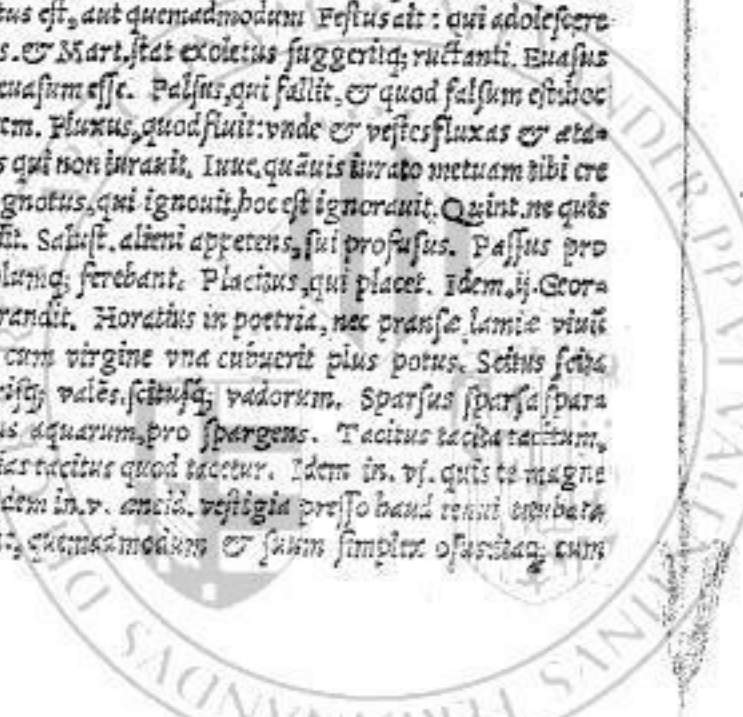 tus eſt, aut quemadmodum Feſtus ait : qui adoleſcere
s. & Mart. ſtat exoletus ſuggeritq; ructanti. Euaſus
euaſum eſſe. Falſus, qui fallit, & quod falſum eſt: hoc
em. Fluxus, quod fluit: vnde & veſtes fluxas & æta=
s qui non iurauit. Iuue. quāuis iurato metuam tibi cre
gnotus, qui ignouit, hoc eſt ignorauit. Quint. ne quis
dit. Saluſt. alieni appetens, ſui profuſus. Paſſus pro
olumq; ferebant. Placitus, qui placet. Idem. ij. Geor=
randit. Horatius in poetria, nec pranſæ lamiæ viuū
cum virgine vna cubuerit plus potus. Scitus ſcita
riſq; valēs. ſcituſq; vadorum. Sparſus ſparſa ſpara
us aquarum, pro ſpargens. Tacitus tacita tacitum,
ias tacitus quod tacetur. Idem in. vj. quis te magne
dem in. v. aneid. veſtigia preſſo haud tenui titubata
quemadmodum & ſuum ſimplex oſus: itaq; cum